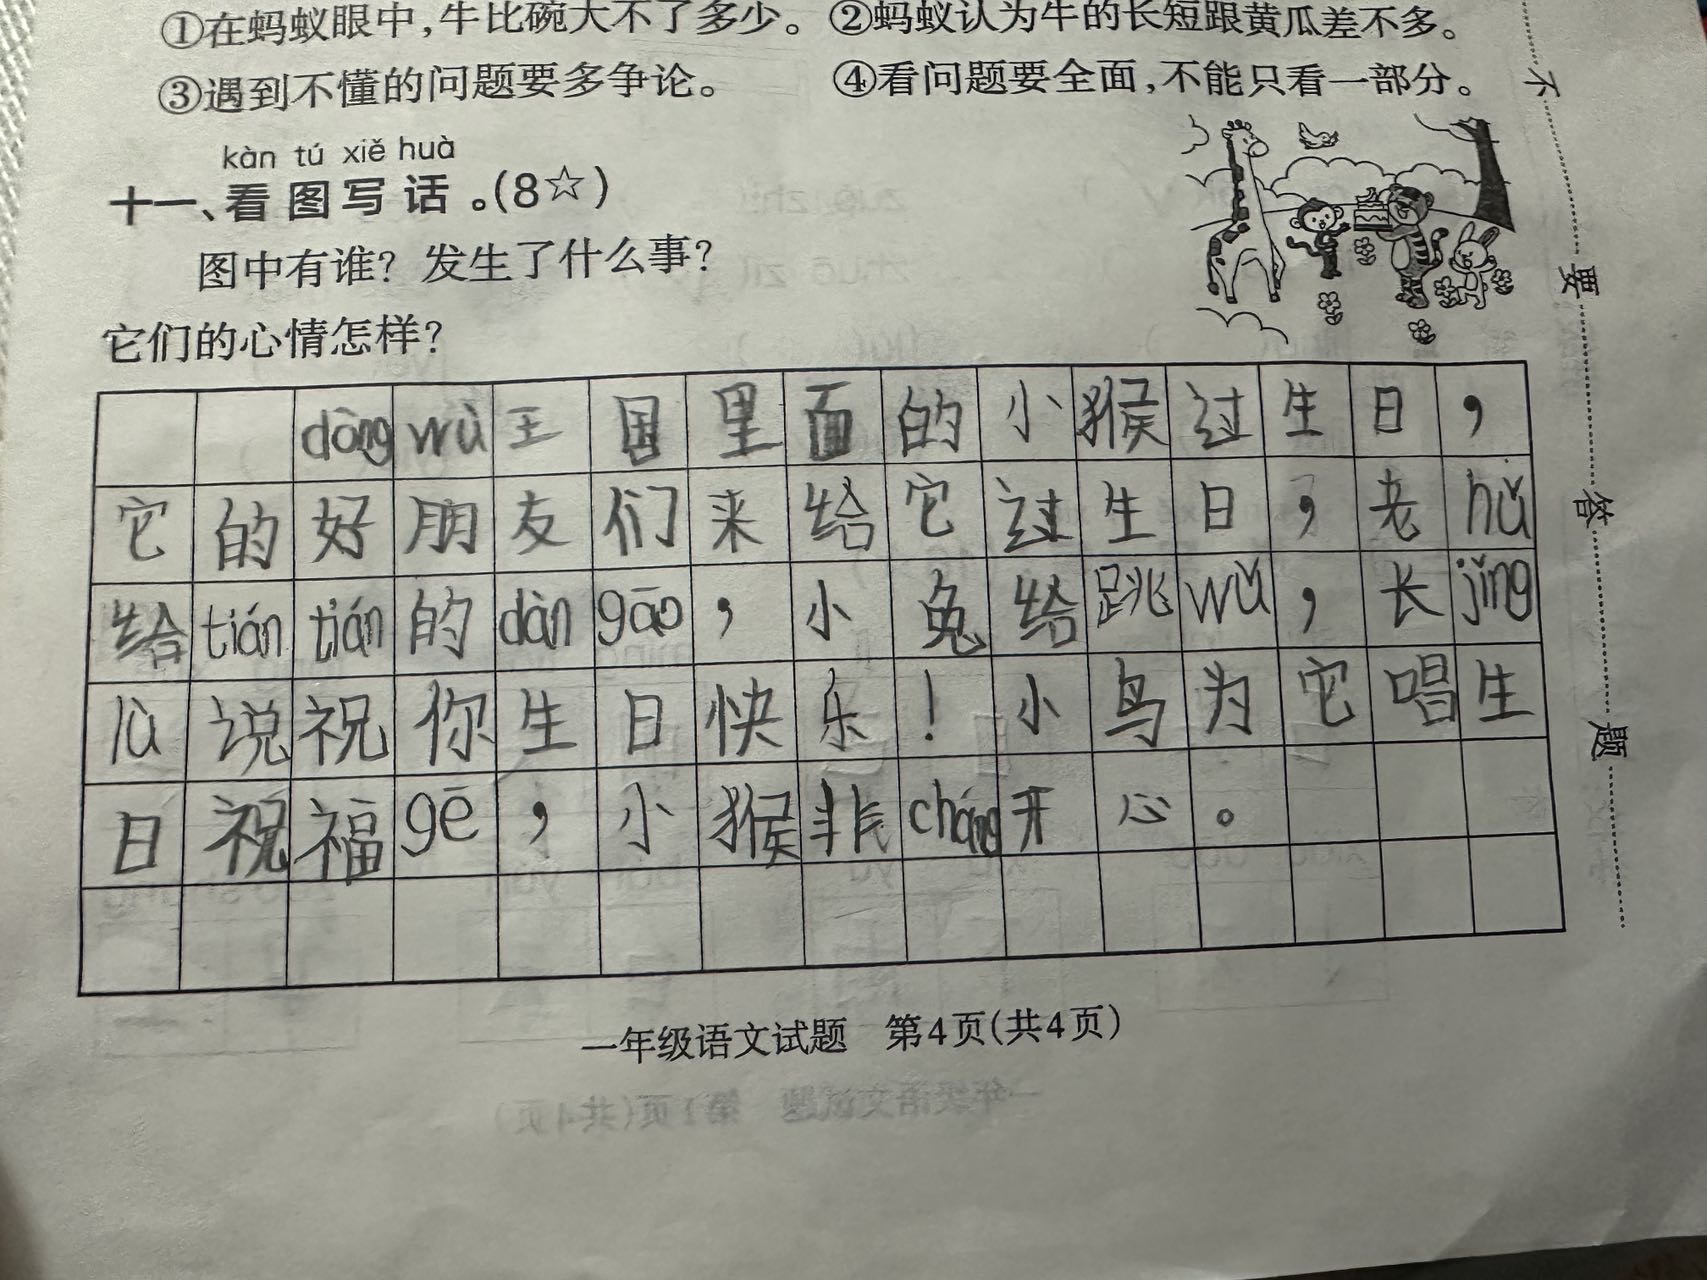 ①在蚂蚁眼中,牛比碗大不了多少。 ②蚂蚁认为牛的长短跟黄瓜差不多。
③遇到不懂的问题要多争论。 ④看问题要全面,不能只看一部分。
kàn tú xiě huà
十一、看图写话。(8☆)
图中有谁? 发生了什么事?
它们的心情怎样?
dòng wù 王国里面的小猴过生日,
它的好朋友们来给它过生日,老hǔ
给tián tián的dàn gāo,小兔给跳wǔ,长jǐng
lù说祝你生日快乐!小鸟为它唱生
日祝福gē,小猴非cháng开心。
一年级语文试题 第4页(共4页)
不
要
答
题